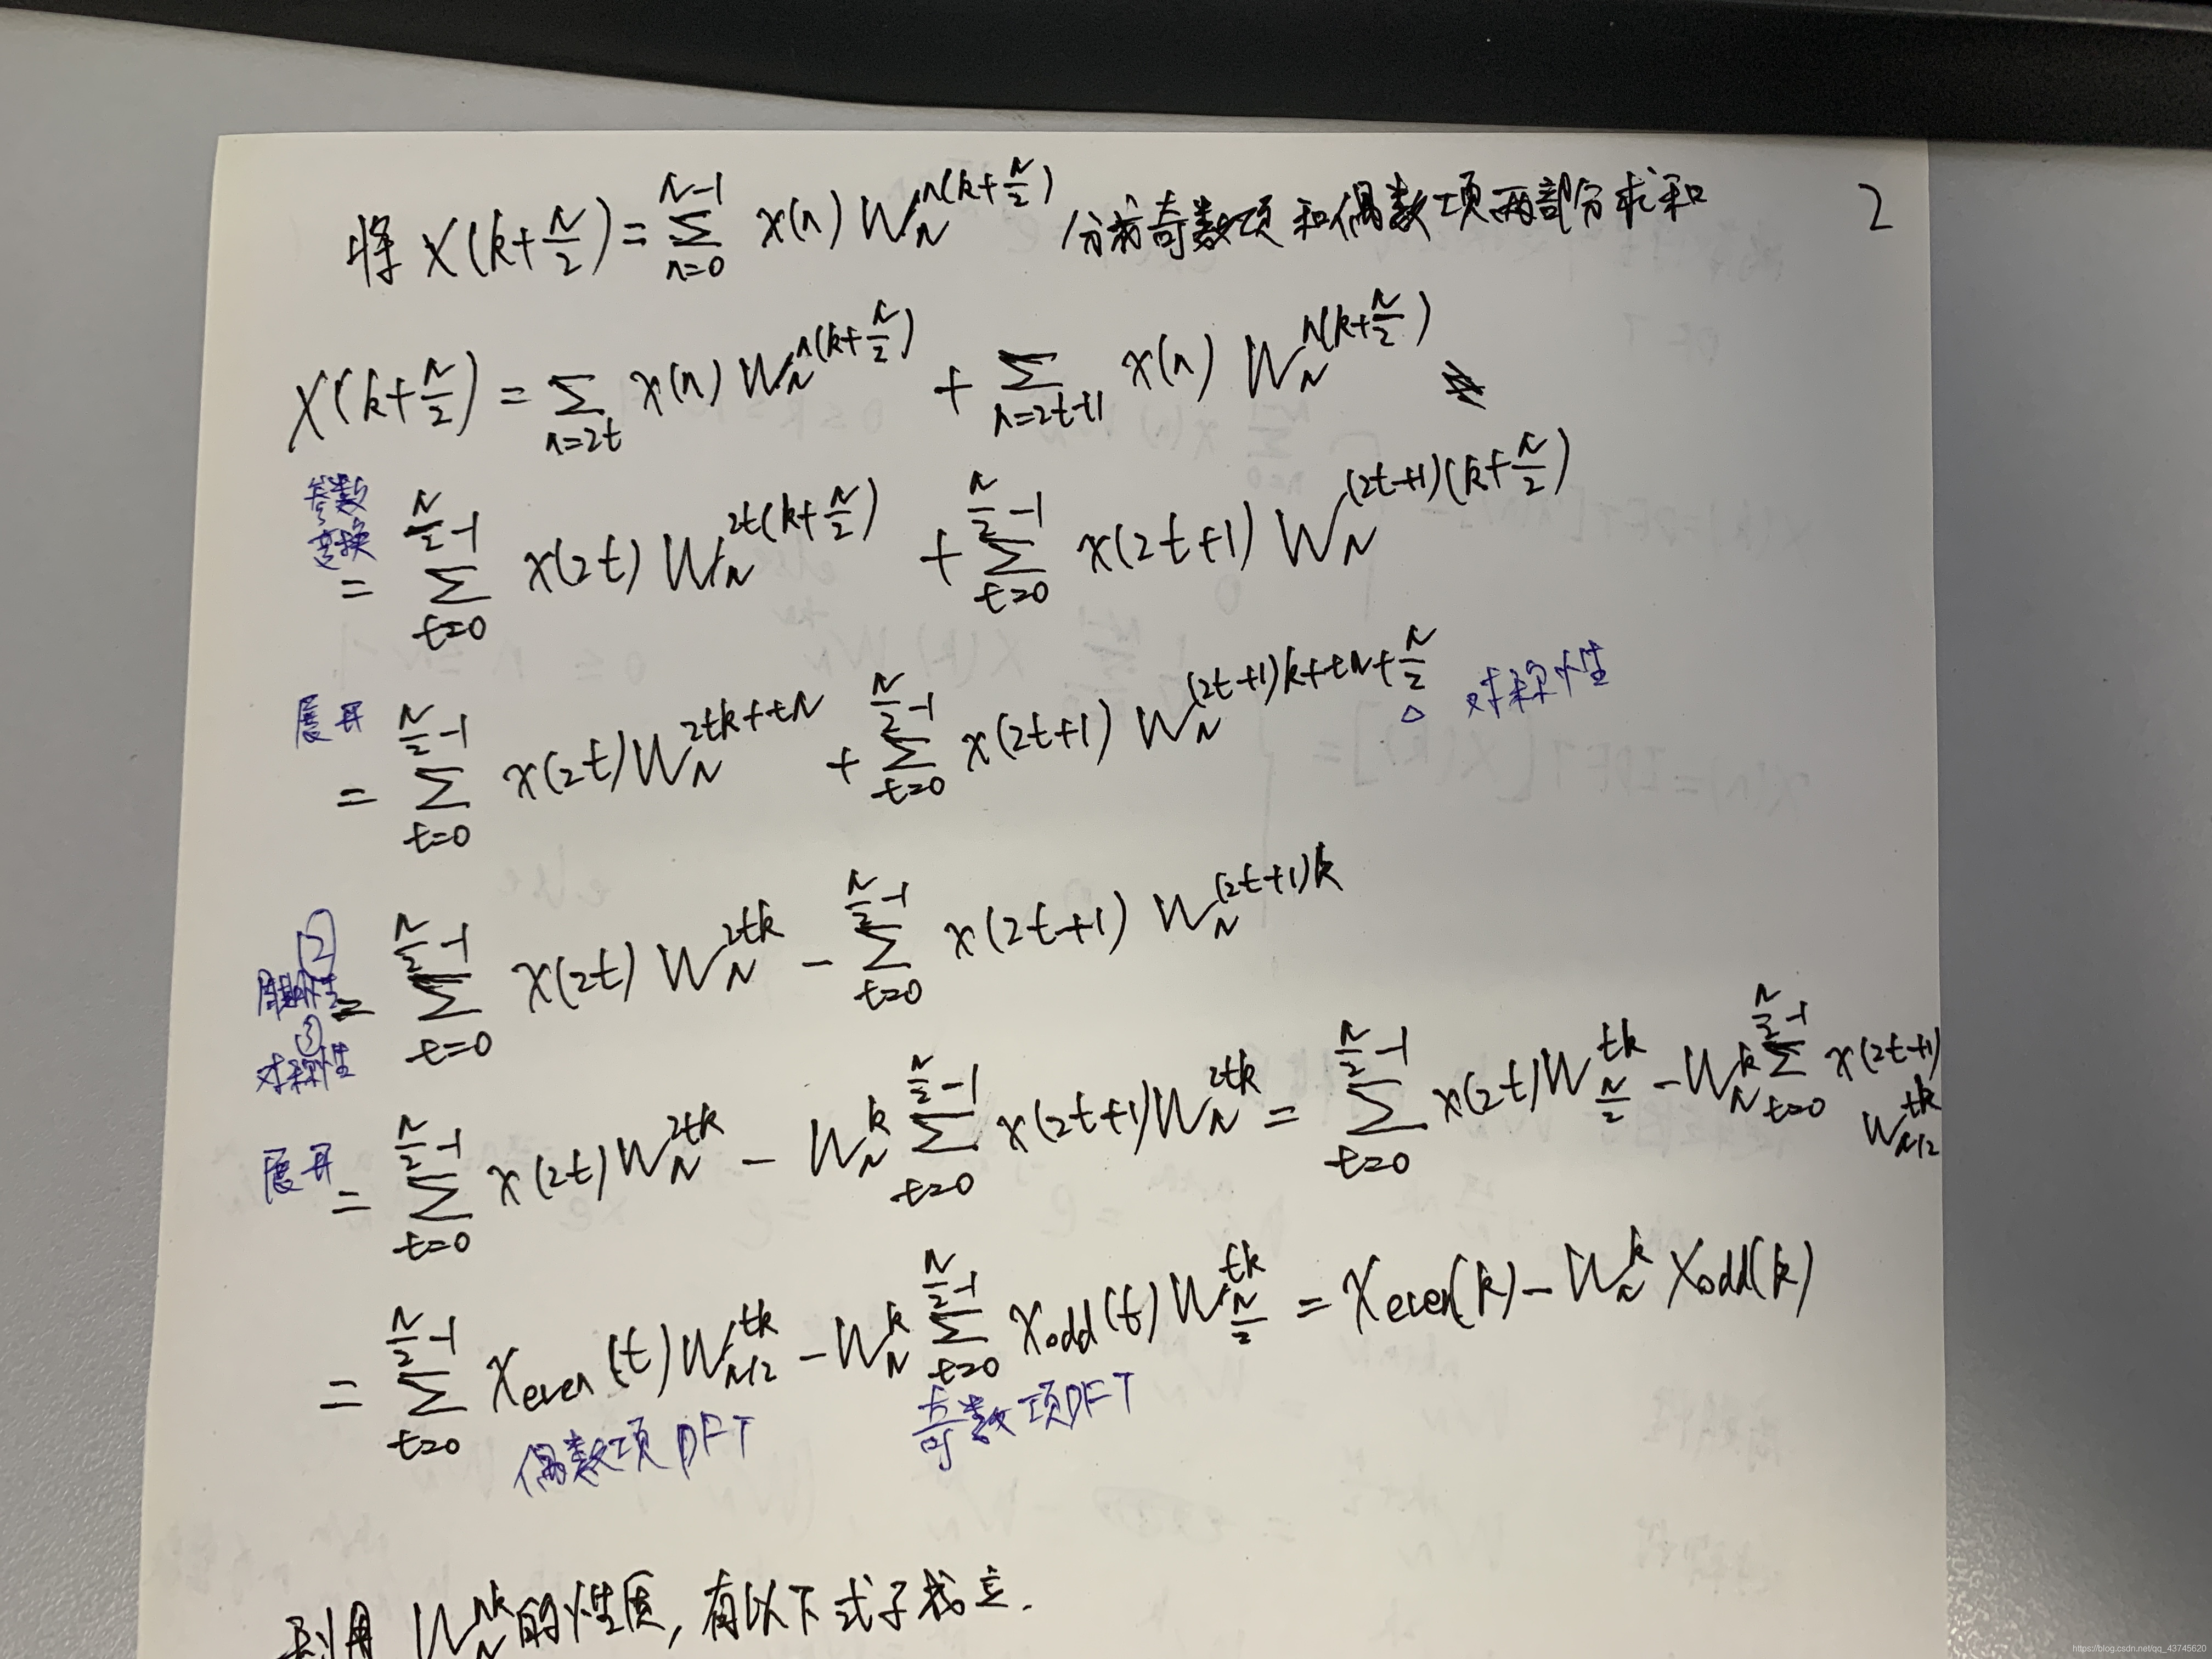 将 X(k+N/2) = Σ_{n=0}^{N-1} x(n) W_N^{n(k+N/2)} 分成奇数项和偶数项两部分求和 2
X(k+N/2) = Σ_{n=2t} x(n) W_N^{n(k+N/2)} + Σ_{n=2t+1} x(n) W_N^{n(k+N/2)}
参数变换 = Σ_{t=0}^{N/2-1} x(2t) W_N^{2t(k+N/2)} + Σ_{t=0}^{N/2-1} x(2t+1) W_N^{(2t+1)(k+N/2)}
展开 = Σ_{t=0}^{N/2-1} x(2t) W_N^{2tk+tN} + Σ_{t=0}^{N/2-1} x(2t+1) W_N^{(2t+1)k+tN+N/2} 对称性
② 周期性 ③ 对称性 = Σ_{t=0}^{N/2-1} x(2t) W_N^{2tk} - Σ_{t=0}^{N/2-1} x(2t+1) W_N^{(2t+1)k}
展开 = Σ_{t=0}^{N/2-1} x(2t) W_N^{2tk} - W_N^k Σ_{t=0}^{N/2-1} x(2t+1) W_N^{2tk} = Σ_{t=0}^{N/2-1} x(2t) W_{N/2}^{tk} - W_N^k Σ_{t=0}^{N/2-1} x(2t+1) W_{N/2}^{tk}
= Σ_{t=0}^{N/2-1} x_even(t) W_{N/2}^{tk} - W_N^k Σ_{t=0}^{N/2-1} x_odd(t) W_{N/2}^{tk} = X_even(k) - W_N^k X_odd(k)
偶数项DFT 奇数项DFT
利用 W_N^{nk} 的性质, 有以下式子成立.
https://blog.csdn.net/qq_43745620